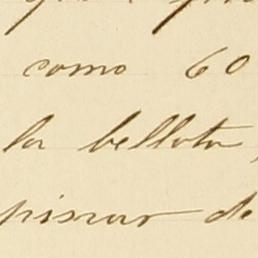 como 60
la bellota,
pisar de